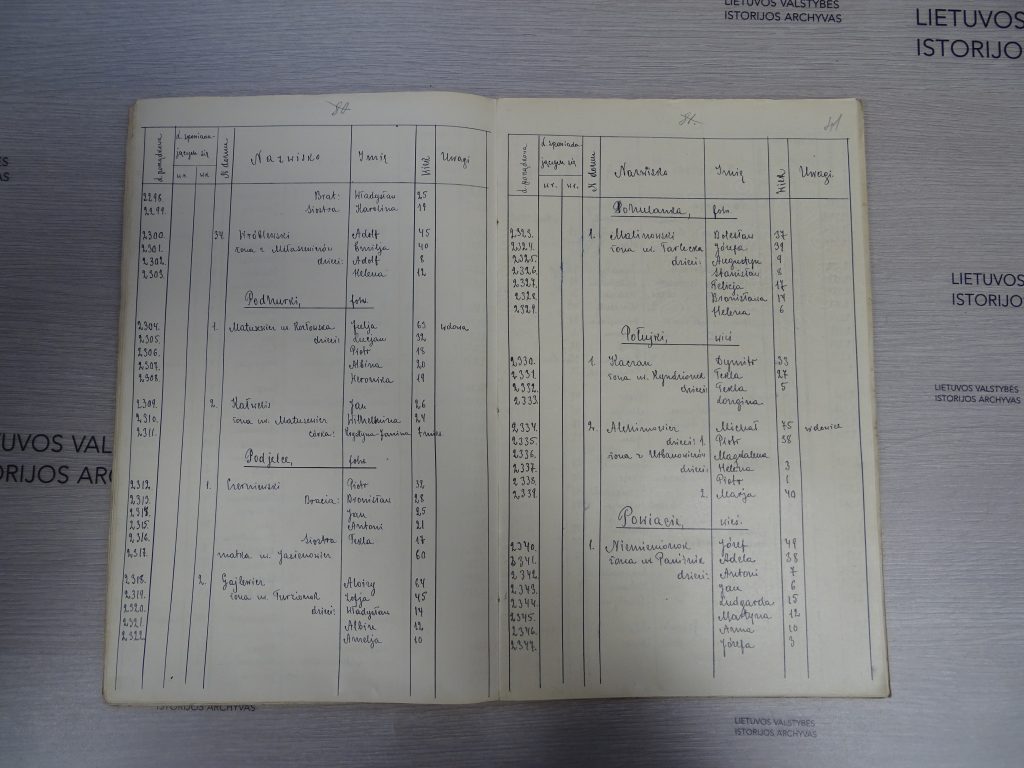 LIETUVOS VALSTYBĖS
ISTORIJOS ARCHYVAS
LIETUVOS
ISTORIJO
VAS
LIETUVOS
ISTORIJOS
LIETUVOS VALSTYBĖS
ISTORIJOS ARCHYVAS
TUVOS VALS
ORIJOS ARCH
ISTORIJOS ARCHYVAS
LIETUVOS VALSTYBĖS
ISTORIJOS ARCHYVAS
l. porządkowa l. spowiadających się N domu Nazwisko Imię Wiek Uwagi
w.r. w.w.
2298. Brat: Władysław 25
2299. Siostra Karolina 19
2300. 34. Wróblewski Adolf 45
2301. żona z Mataszewiczów Emilja 40
2302. dzieci: Adolf 8
2303. Helena 12
Podżurki, folw.
2304. 1. Matusewicz Julja 63 wdowa
2305. dzieci: Lucjan 32
2306. Piotr 18
2307. Albina 20
2308. Weronika 19
2309. 2. Jan 26
2310. żona ur. Matusewicz Wilhelmina 24
2311. córka: Krystyna-Janina
Podjelce, folw.
2312. 1. Czerniewski Piotr 32
2313. Bracia: Bronisław 28
2314. Jan 25
2315. Antoni 21
2316. Siostra Tekla 17
2317. matka ur. Jacienowicz 60
2318. 2. Gajlewicz Aloizy 64
2319. żona ur. Zofja 45
2320. dzieci: Władysław 14
2321. Albin 12
2322. Amelja 10
81
l. porządkowa l. spowiadających się N domu Nazwisko Imię Wiek Uwagi
w.r. w.w.
Pohulanka, folw.
2323. 1. Malinowski Bolesław 37
2324. żona ur. Tarlecka Józefa 39
2325. dzieci: Augustyn 9
2326. Stanisław 8
2327. Felicja 17
2328. Bronisława 14
2329. Helena 6
Połujki, wieś
2330. 1. Kaczan Dymitr 33
2331. żona ur. Tekla 27
2332. dzieci: Tekla 5
2333. Longina
2334. 2. Michał 75 wdowiec
2335. dzieci: 1. Piotr 38
2336. żona z Urbanowiczów Magdalena
2337. dzieci: Helena 3
2338. Piotr 1
2339. 2. Marja 40
Powiacie, wieś.
2340. 1. Józef 49
2341. żona ur. Adela 38
2342. dzieci: Antoni 7
2343. Jan 6
2344. Ludgarda 15
2345. Martyna 12
2346. Anna 10
2347. Józefa 3